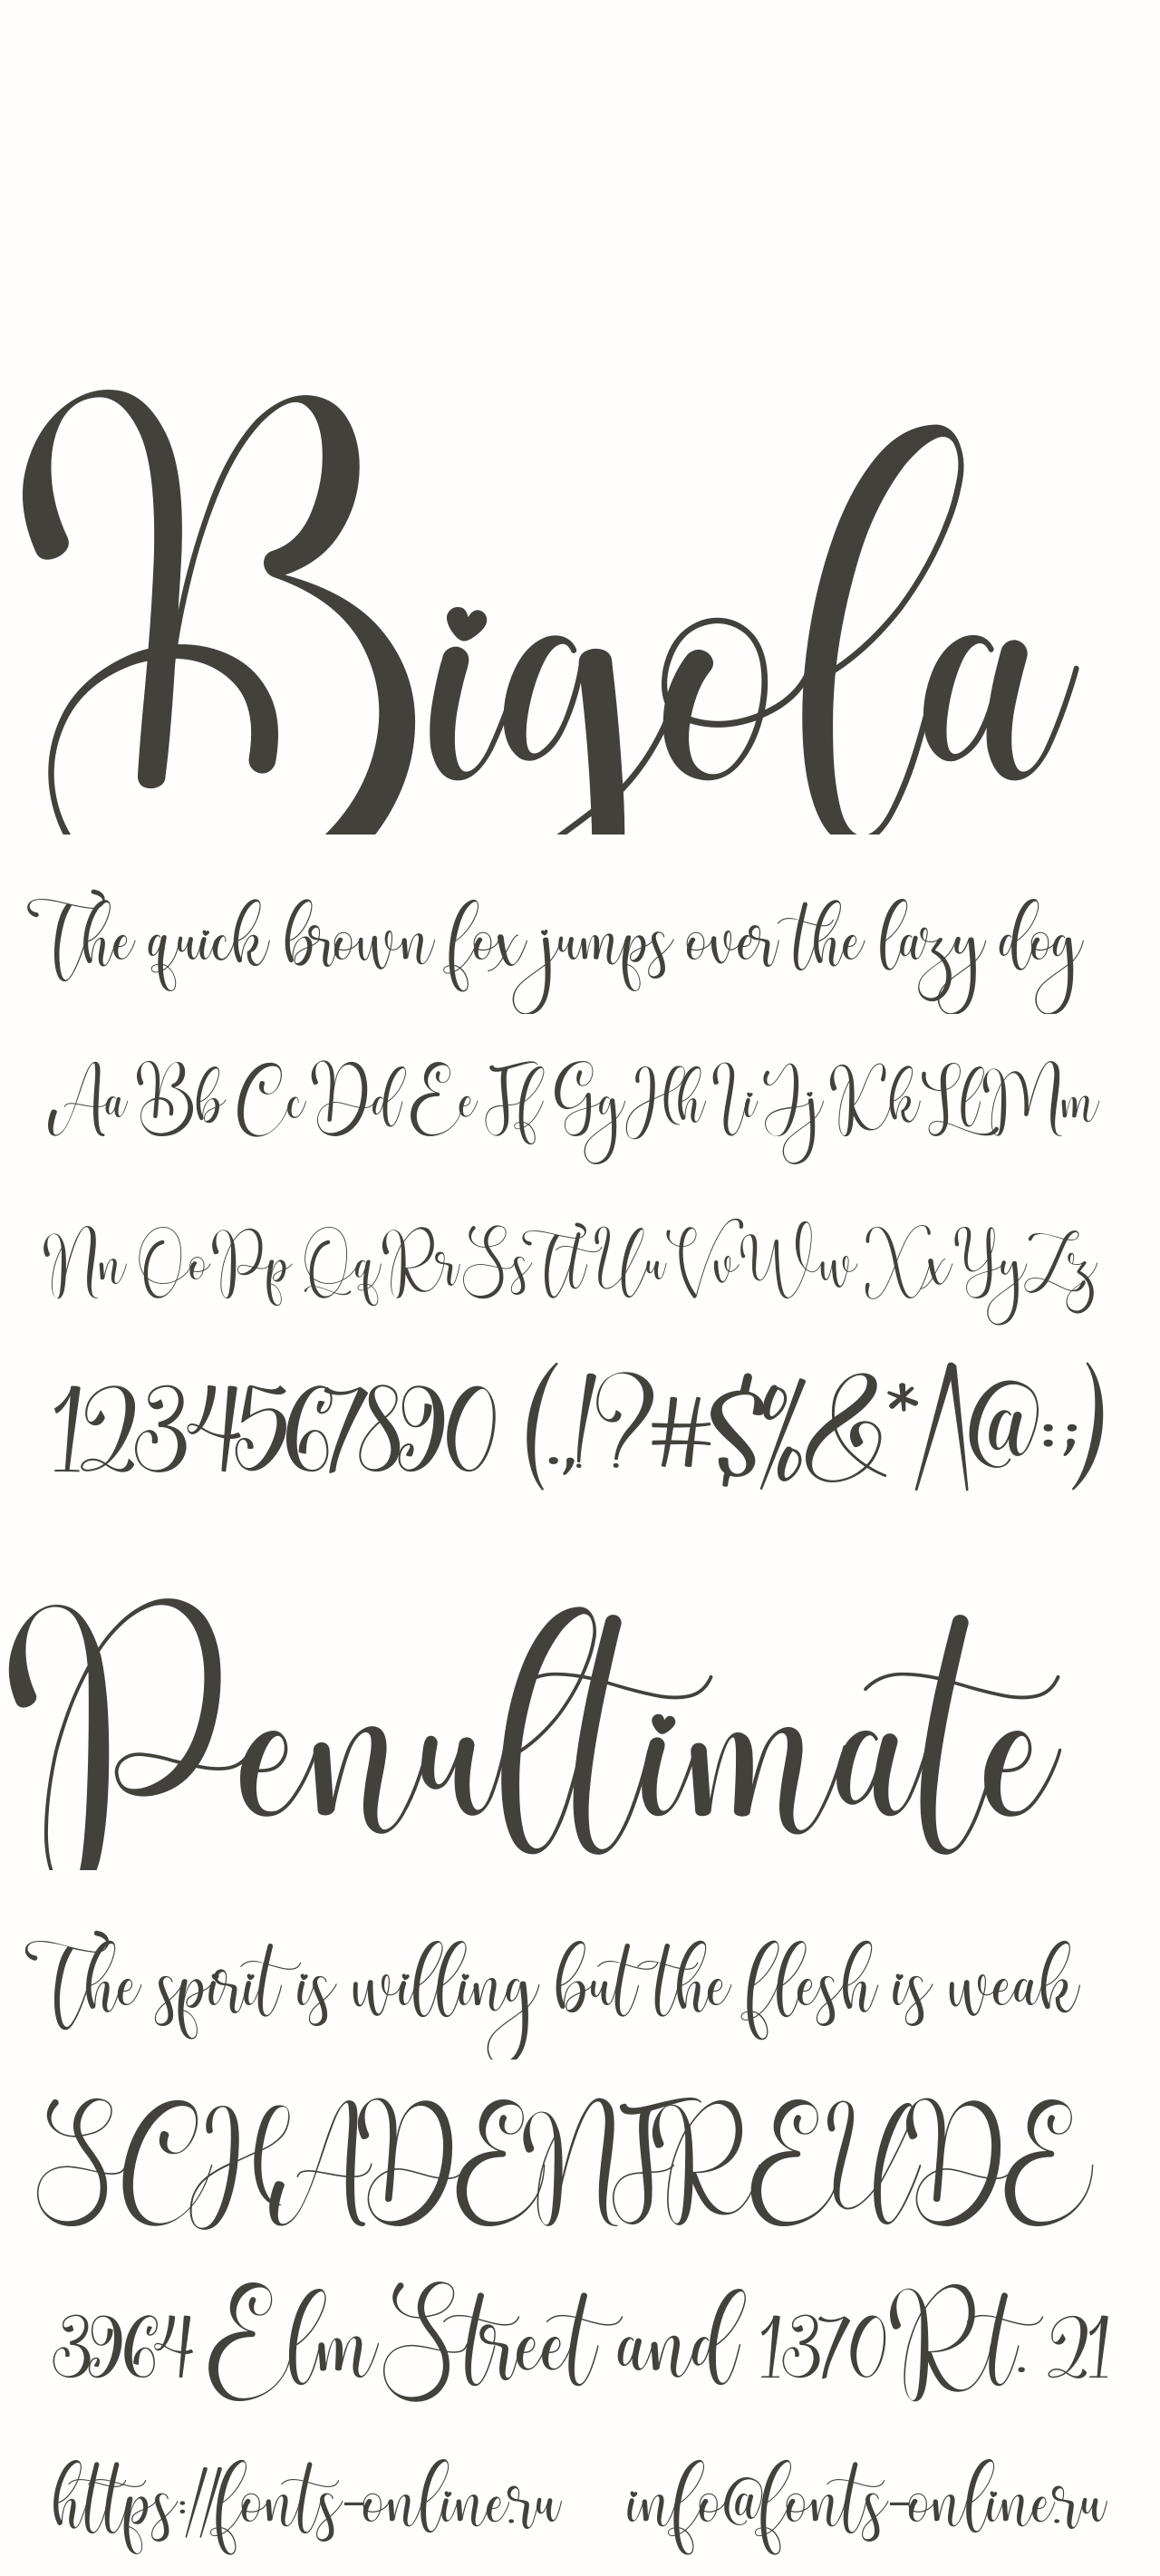 Bigola
The quick brown fox jumps over the lazy dog
Aa Bb Cc Dd Ee Ff Gg Hh Ii Jj Kk Ll Mm
Nn Oo Pp Qq Rr Ss Tt Uu Vv Ww Xx Yy Zz
1234567890 (.,!?#$%&*/\@:;)
Penultimate
The spirit is willing but the flesh is weak
SCHADENFREUDE
3964 Elm Street and 1370 Rt. 21
https://fonts-online.ru info@fonts-online.ru